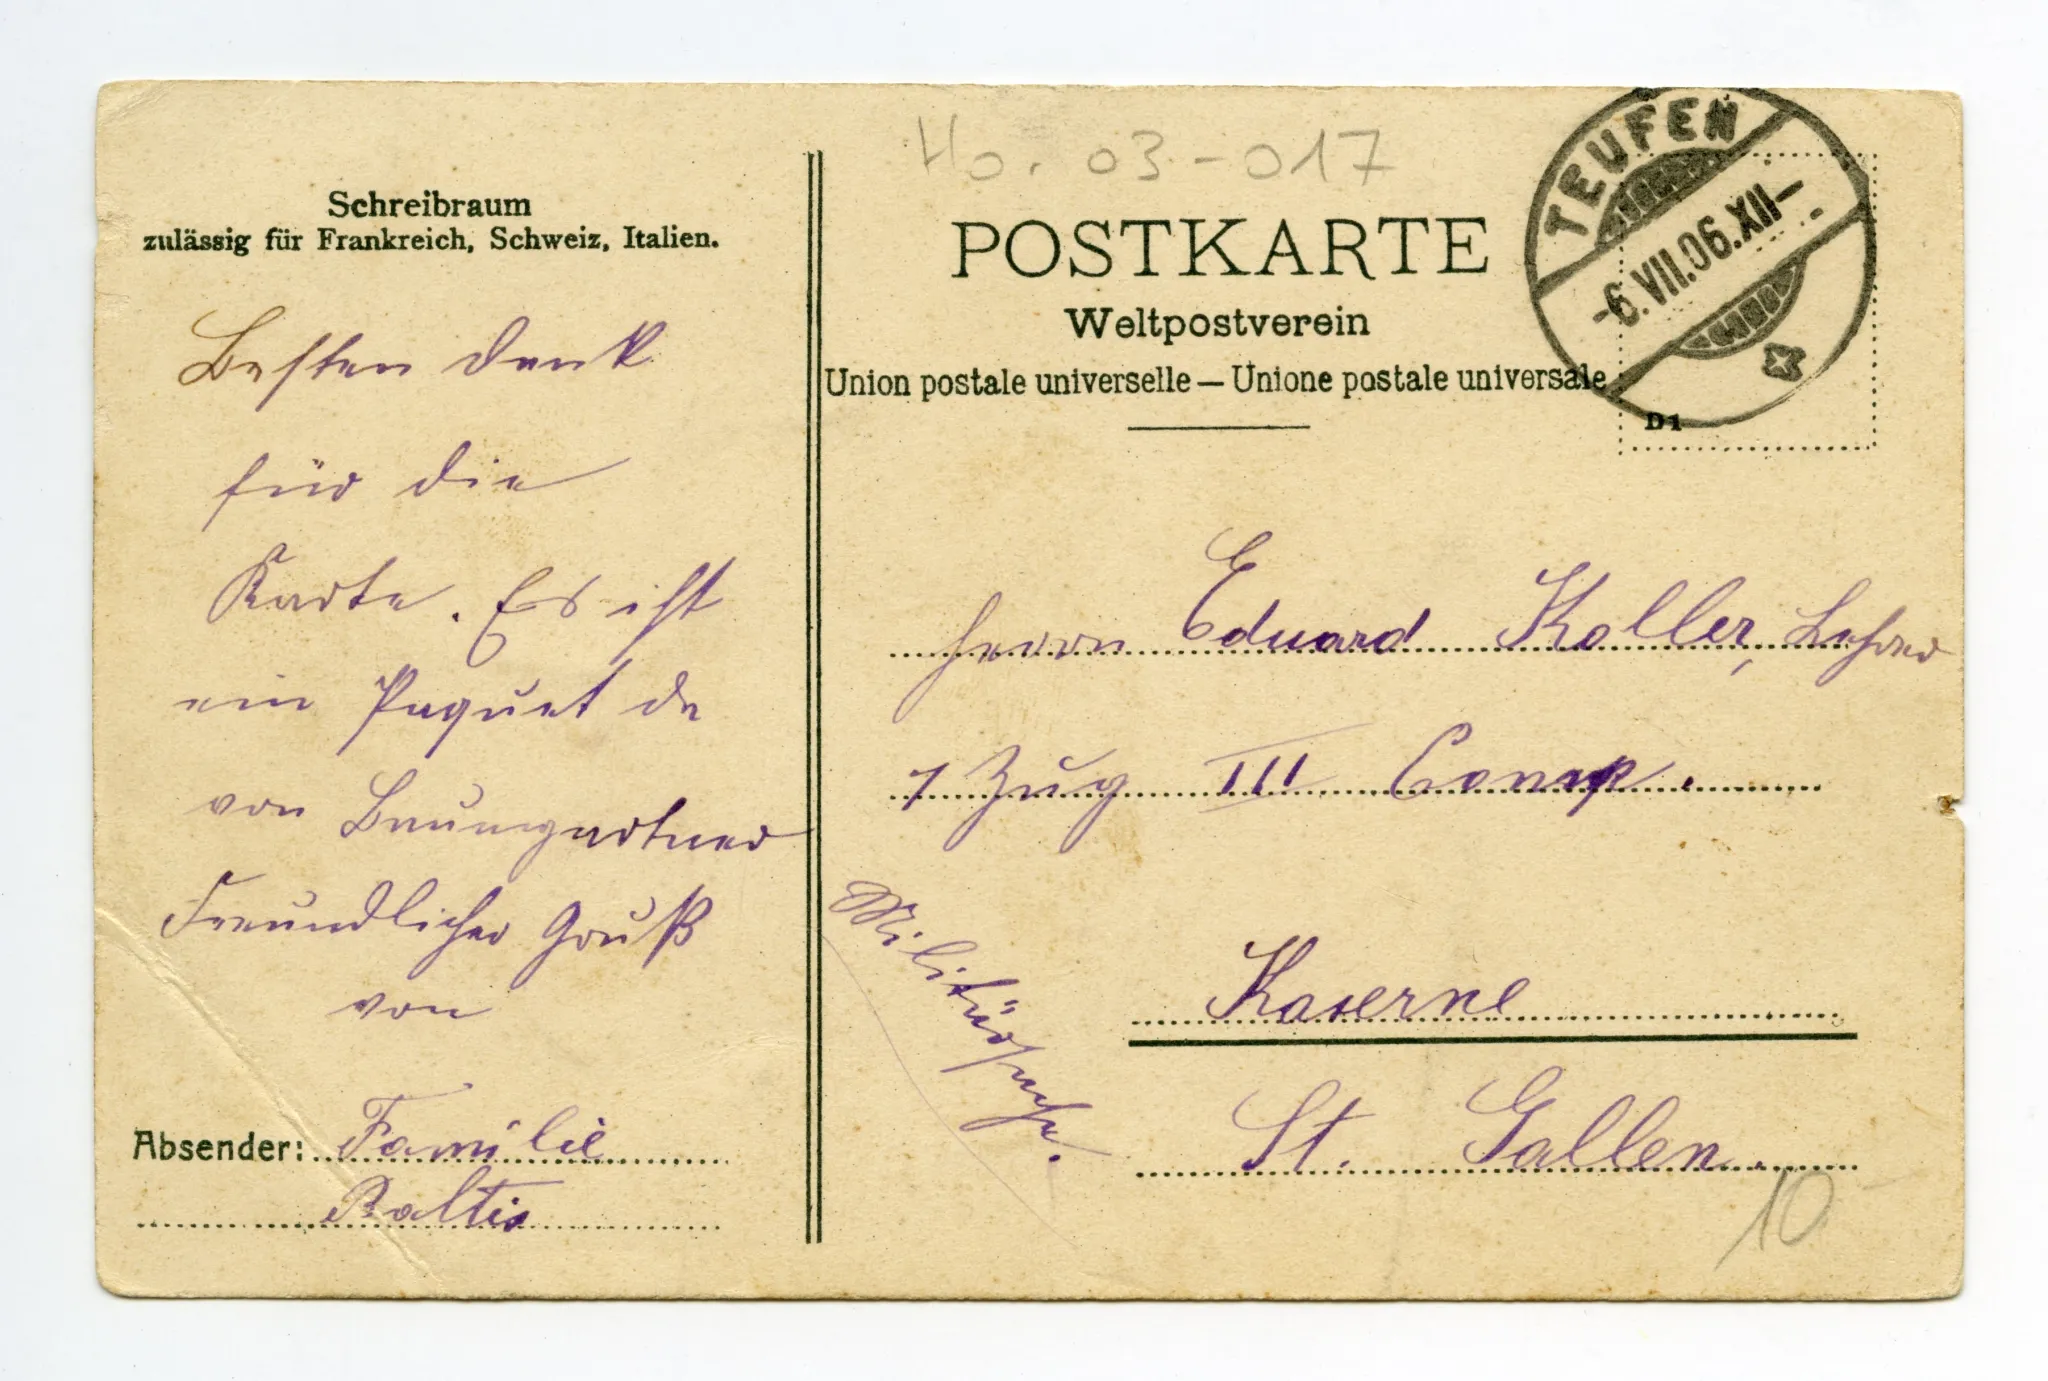 Ho. 03-017
Schreibraum
zulässig für Frankreich, Schweiz, Italien.
Besten Dank
für die
Karte. Es ist
ein Paquet da
von Baumgartner
Freundlicher Gruß
von
Absender: Familie
POSTKARTE
Weltpostverein
Union postale universelle — Unione postale universale
TEUFEN
-6.VII.06.XII-
D1
Herrn Eduard Koller, Lehrer
1 Zug III Comp.
Militärsache.
Kaserne
St. Gallen.
10